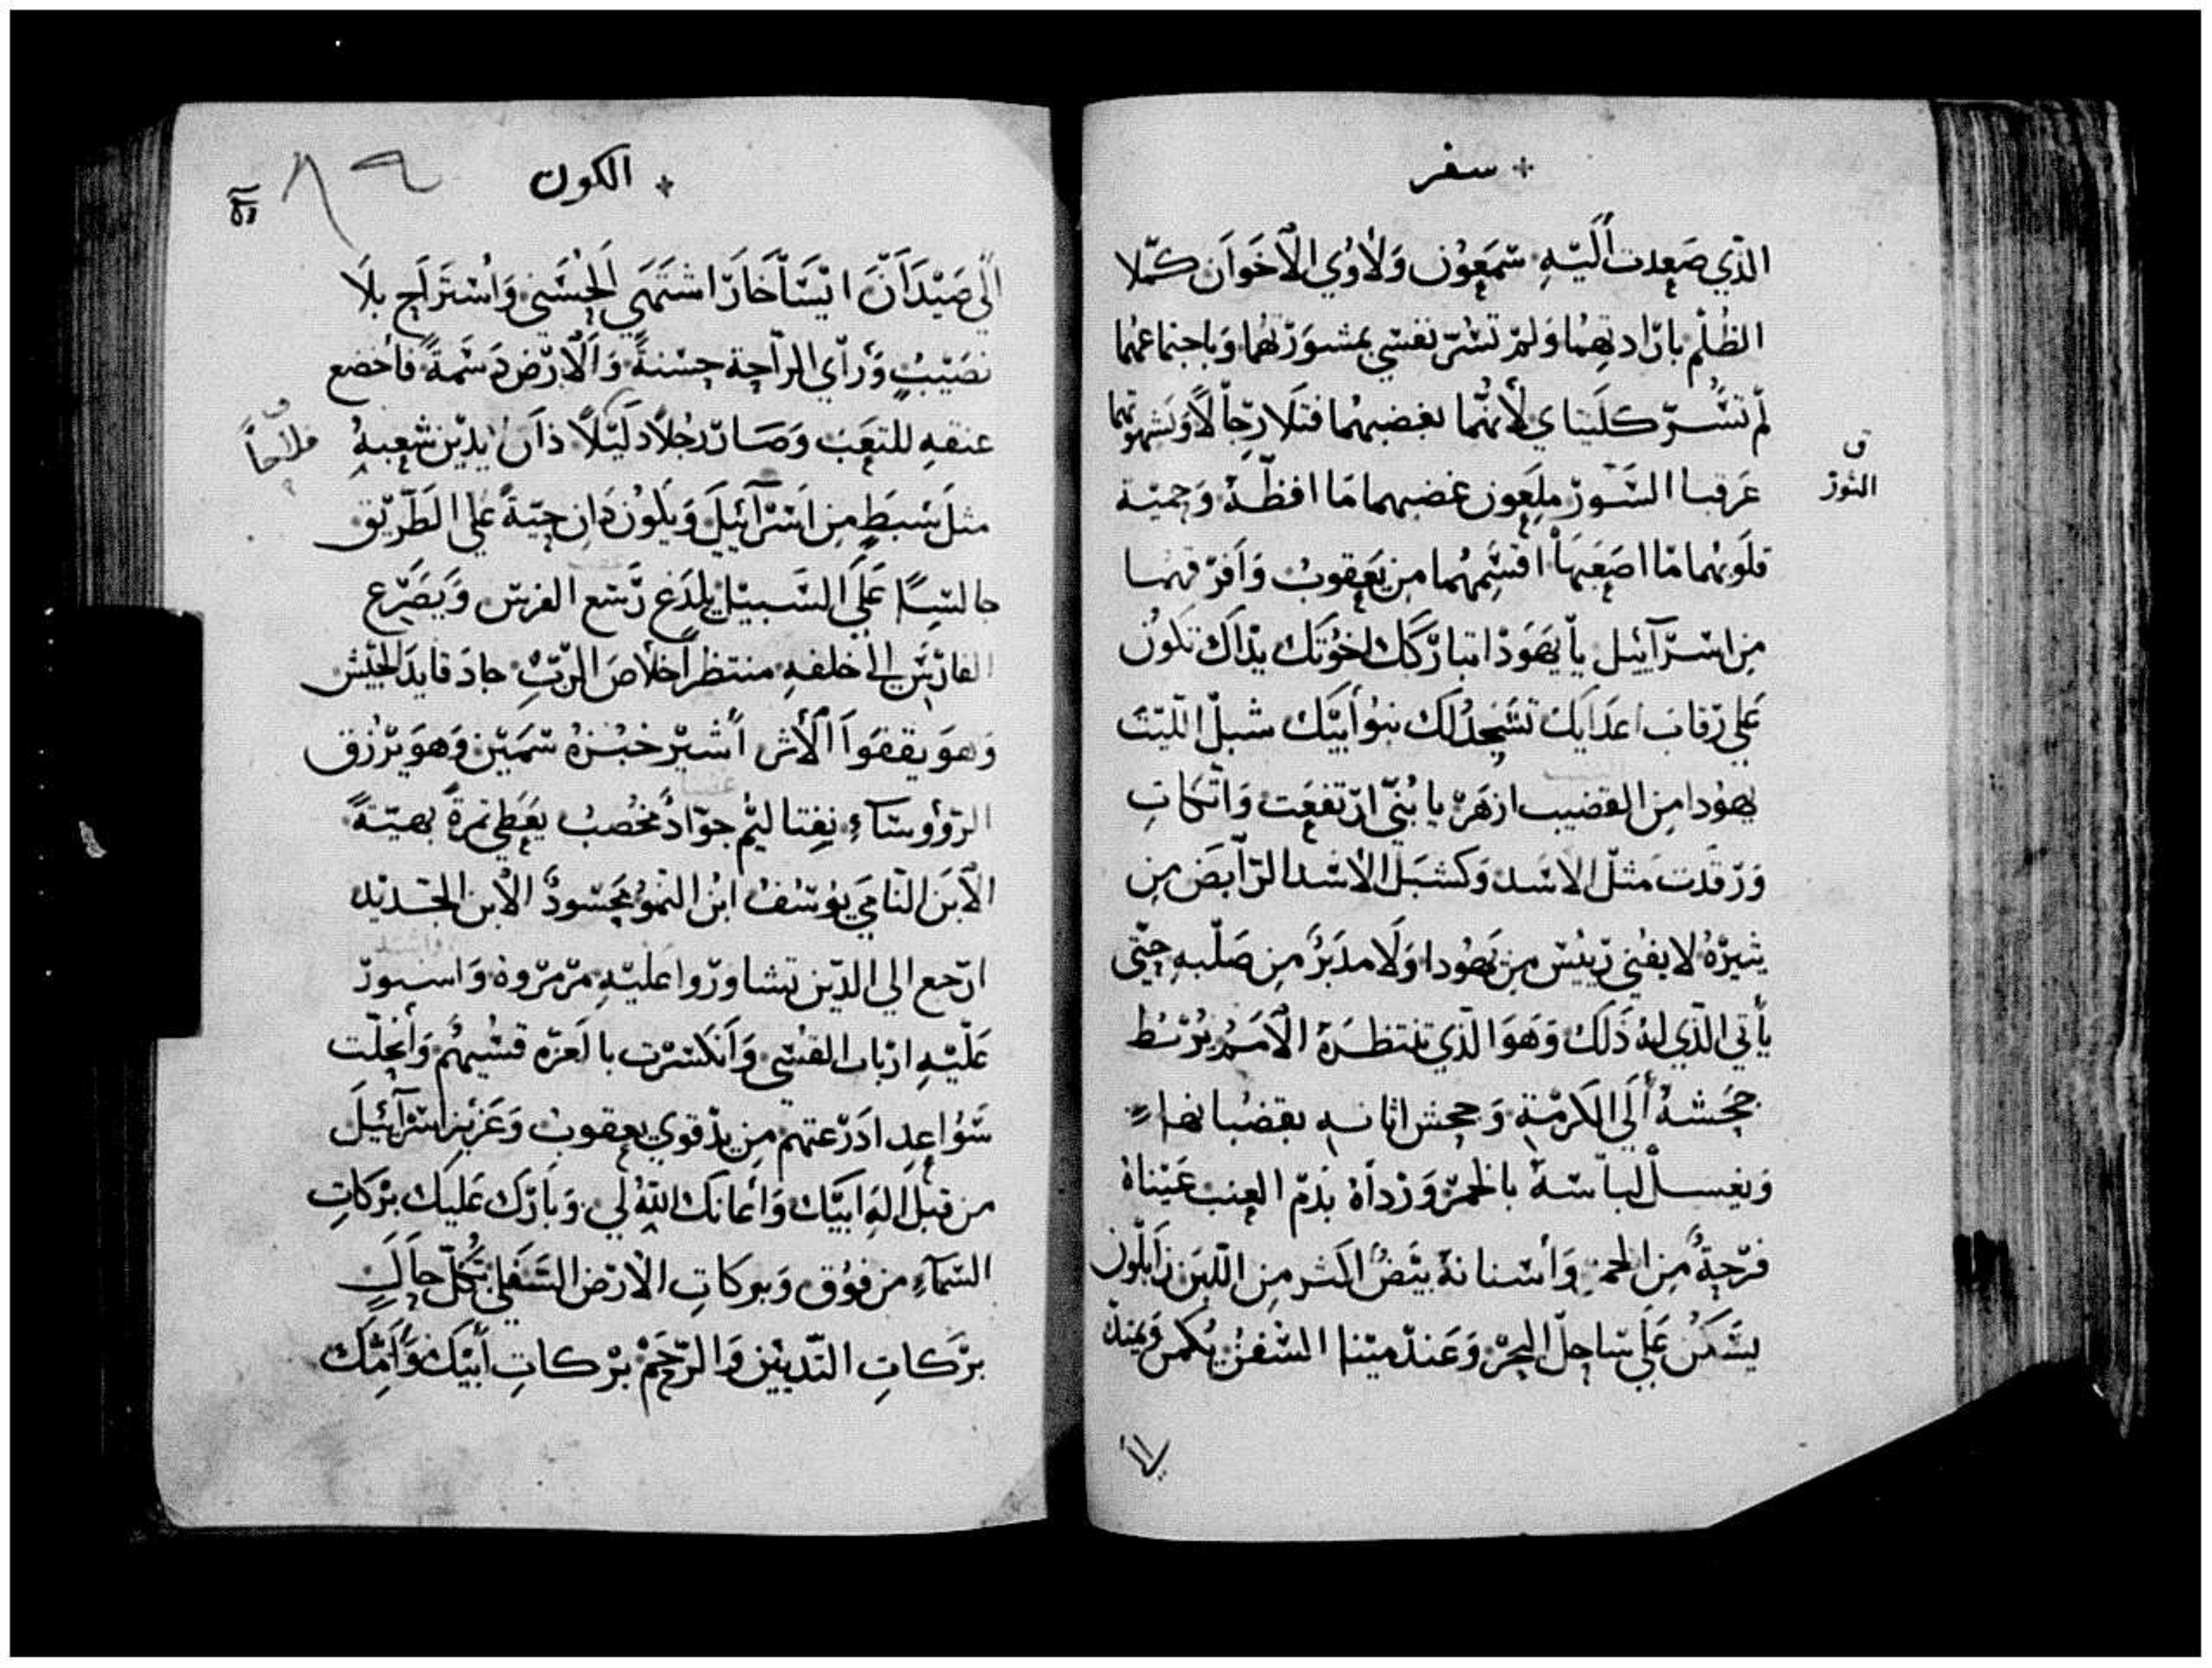 سفر
الذي صعدت اليه شمعون ولاوي الاخوان كملا
الظلم بارادتهما ولم تسر نفسي بمشورتهما وباجتماعهما
لم تسر كليتاي لانهما بغضبهما قتلا رجالا وبشهوتهما
عرقبا السور ملعون غضبهما ما افظه وحمية
ق
الثور
قلوبهما ما اصعبها اقسمهما من يعقوب وافرقهما
من اسرآييل يا يهودا تباركك اخوتك يداك تكون
على رقاب اعدايك تسجد لك بنو أبيك شبل الليث
يهودا من القضيب ازهر يا بني ارتفعت واتكات
ورقدت مثل الاسد وكشبل الاسد الرابض من
يثيره لا يفني رييس من يهودا ولا مدبر من صلبه حتى
يأتي الذي له ذلك وهو الذي تنتظره الامم يربط
جحشه ألي الكرمة وجحش اتانه بقضبانها
ويغسل لباسه بالخمر ورداه بدم العنب عيناه
فرحة من الخمر وأسنانه بيض اكثر من اللبن زابلون
يسكن على ساحل البحر وعند مينا السفن يكمن ويمتد
الكون
٨٩
الي صيدان ايساخار اشتهي الحسني واستراح بلا
نصيب ورأي الراحة حسنة والارض دسمة فأخضع
عنقه للتعب وصار رجلا دليلا دان يدين شعبه
ق
فلاحاً
مثل سبط من اسرآئيل ويكون دان حية علي الطريق
جالسا على السبيل يلدغ رسع الفرس ويصرع
الفارس الي خلفه منتظرا خلاص الرب جاد قايد الجيش
وهو يقفوا الأثر أشير خبزه سمين وهو يرزق
الرؤوساء نفتاليم جواد مخصب يعطي ثمرة بهية
الابن النامي يوسف ابن النمو محسود الابن الجديد
ارجع الي الذين تشاوروا عليه مرمروه واسبور
عليه ارباب القسي وانكسرت بالعزه قسيهم وأنحلت
سواعد ادرعتهم من يد قوي يعقوب وعزيز اسرآئيل
من قبل اله ابيك وأعانك الله لي وبارك عليك بركات
السماء من فوق وبركات الارض السفلي بكل حال
بركات الثديين والرحم بركات أبيك وأمك